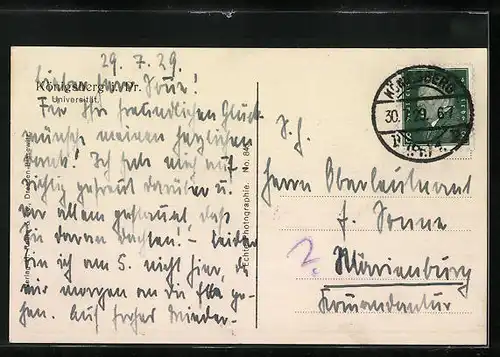 29.7.29.
Königsberg i. Pr.
Universität.
Lieber Herr Sonne!
Für Ihre freundlichen Glück-
wünsche meinen herzlichen
Dank! Ich habe mich auf-
richtig gefreut darüber u.
vor allem gestaunt, daß
Sie daran dachten! - Leider
bin ich am 5. nicht hier, da
wir morgen an die See ge-
hen. Auf frohes Wieder-
Echte Photographie. No. 84
KÖNIGSBERG
30.7.29. 6-7
S. H.
Herrn Oberleutnant
F. Sonne
Marienburg
Kommandantur
2.